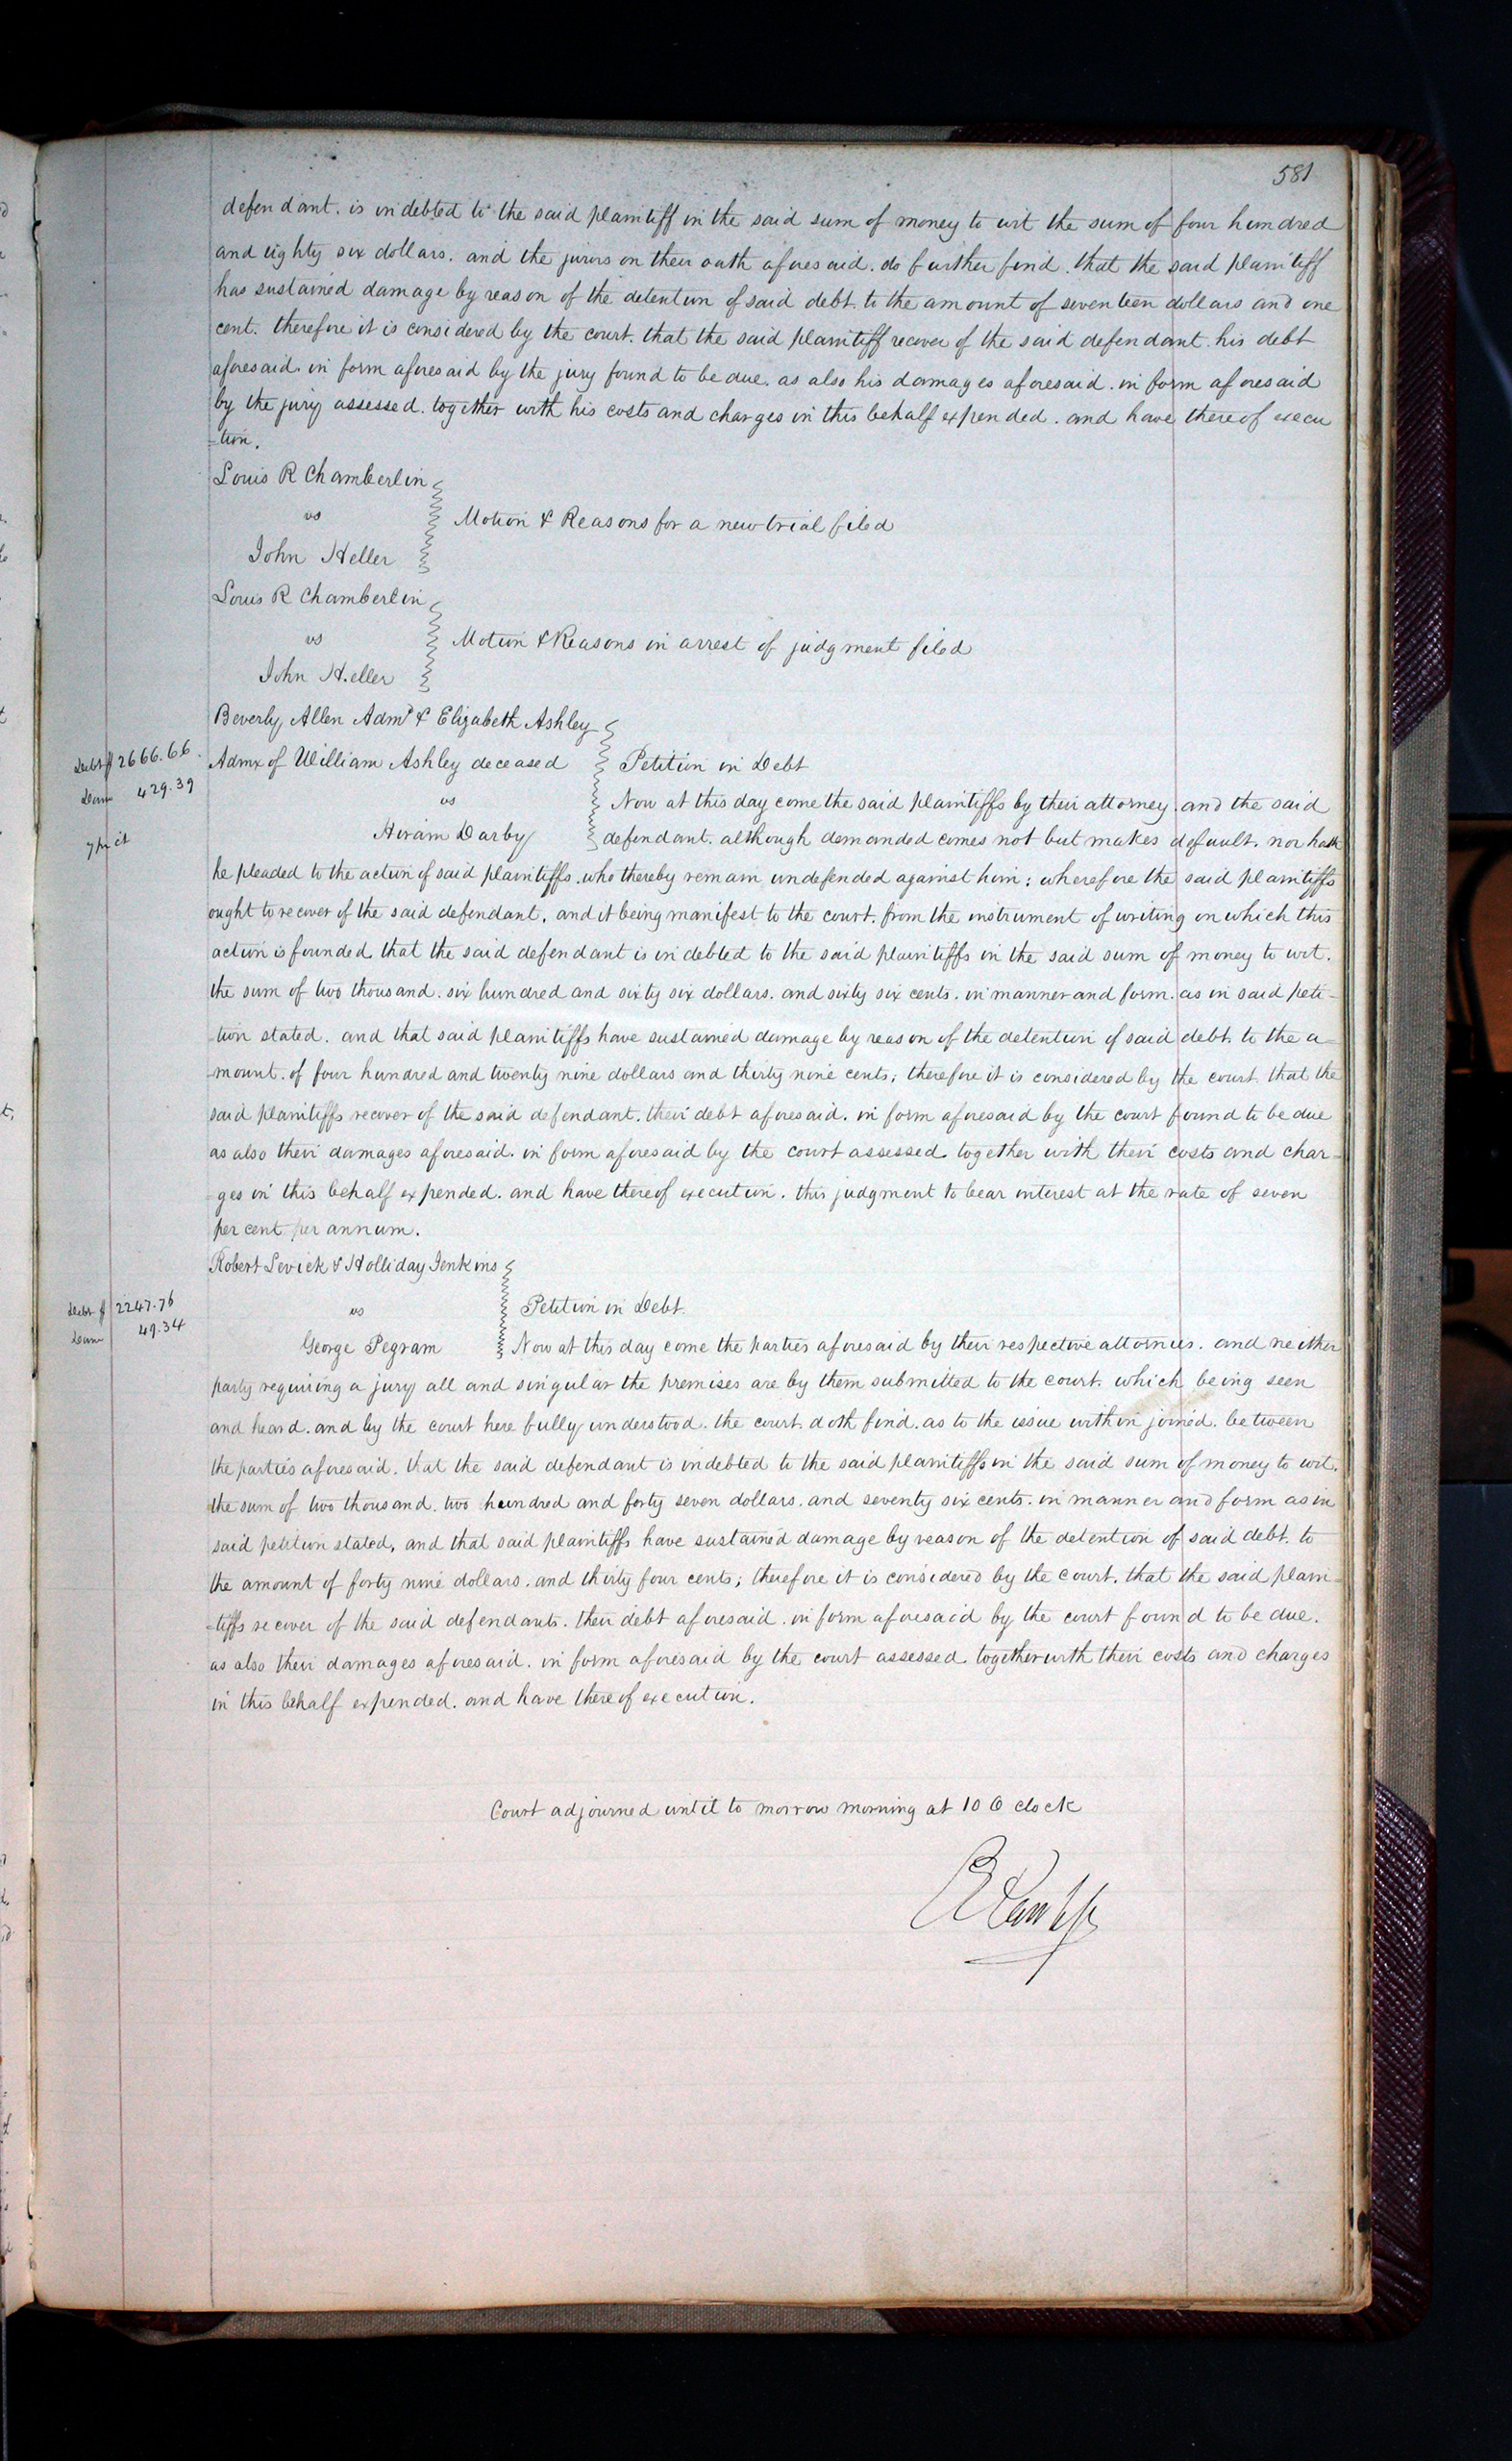 581
defendant. is indebted to the said plaintiff in the said sum of money to wit the sum of four hundred
and eighty six dollars. and the jurors on their oath aforesaid. do further find. that the said plaintiff
has sustained damage by reason of the detention of said debt. to the amount of seventeen dollars and one
cent. therefore it is considered by the court. that the said plaintiff recover of the said defendant. his debt
aforesaid. in form aforesaid by the jury found to be due. as also his damages aforesaid. in form aforesaid
by the jury assessed. together with his costs and charges in this behalf expended. and have thereof execu
-tion.
Louis R Chamberlin
vs
Motion & Reasons for a new trial filed
John Heller
Louis R Chamberlin
vs
Motion & Reasons in arrest of judgment filed
John Heller
Beverly Allen Admr & Elizabeth Ashley
Debt $ 2666.66
Admx of William Ashley deceased
Petition in Debt
Dam 429.39
vs
Now at this day come the said plaintiffs by their attorney. and the said
7 pr ct
Hiram Darby
defendant. although demanded comes not but makes default. nor hath
he pleaded to the action of said plaintiffs. who thereby remain undefended against him: wherefore the said plaintiffs
ought to recover of the said defendant. and it being manifest to the court. from the instrument of writing on which this
action is founded. that the said defendant is indebted to the said plaintiffs in the said sum of money to wit.
the sum of two thousand. six hundred and sixty six dollars. and sixty six cents. in manner and form. as in said peti-
-tion stated. and that said plaintiffs have sustained damage by reason of the detention of said debt. to the a-
-mount. of four hundred and twenty nine dollars and thirty nine cents; therefore it is considered by the court. that the
said plaintiffs recover of the said defendant. their debt aforesaid. in form aforesaid by the court found to be due
as also their damages aforesaid. in form aforesaid by the court assessed. together with their costs and char-
-ges in this behalf expended. and have thereof execution. this judgment to bear interest at the rate of seven
per cent per annum.
Robert Levick & Holliday Jenkins
Debt $ 2247.76
vs
Petition in Debt.
Dam 49.34
George Pegram
Now at this day come the parties aforesaid by their respective attornies. and neither
party requiring a jury all and singular the premises are by them submitted to the court. which being seen
and heard. and by the court here fully understood. the court. doth find. as to the issue within joined. between
the parties aforesaid. that the said defendant is indebted to the said plaintiffs in the said sum of money to wit.
the sum of two thousand. two hundred and forty seven dollars. and seventy six cents. in manner and form as in
said petition stated, and that said plaintiffs have sustained damage by reason of the detention of said debt. to
the amount of forty nine dollars. and thirty four cents; therefore it is considered by the court. that the said plain-
-tiffs recover of the said defendants. their debt aforesaid. in form aforesaid by the court found to be due.
as also their damages aforesaid. in form aforesaid by the court assessed. together with their costs and charges
in this behalf expended. and have thereof execution.
Court adjourned until to morrow morning at 10 O clock